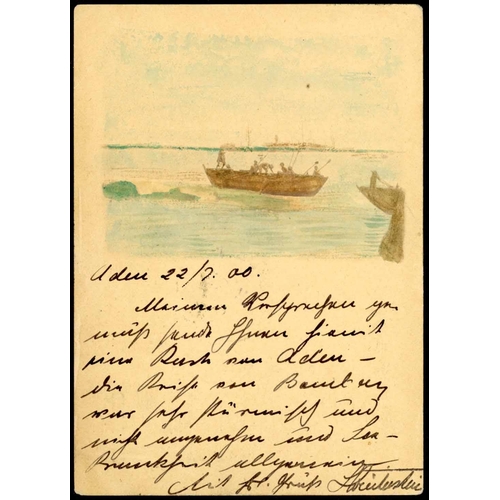 Aden 22/7. 00.
Meinem Versprechen ge-
mäß sende Ihnen hiemit
eine Karte von Aden –
die Reise von Bombay
war sehr stürmisch und
nicht angenehm und See-
krankheit allgemein.
Mit Gruß